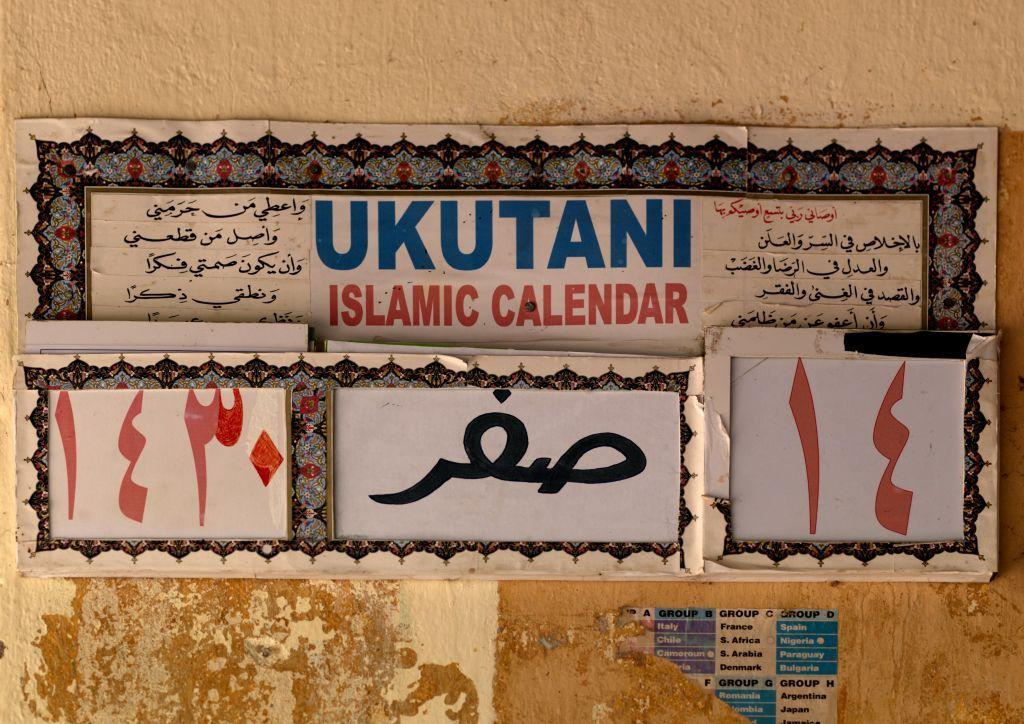 UKUTANI
ISLAMIC CALENDAR
أوصاني ربي بتسع أوصيكم بها
بالإخلاص في السّرّ والعلن
والعدل في الرضا والغضب
والقصد في الغنى والفقر
وأن أعفو عن من ظلمني
واعطي من حرمني
وأصل من قطعني
وأن يكون صمتي فكرًا
ونطقي ذكرًا
١٤
صفر
١٤٣٠
A GROUP B GROUP C GROUP D
Italy France Spain
Chile S. Africa Nigeria
Cameroun S. Arabia Paraguay
Denmark Bulgaria
F GROUP G GROUP H
Romania Argentina
Japan
Jamaica